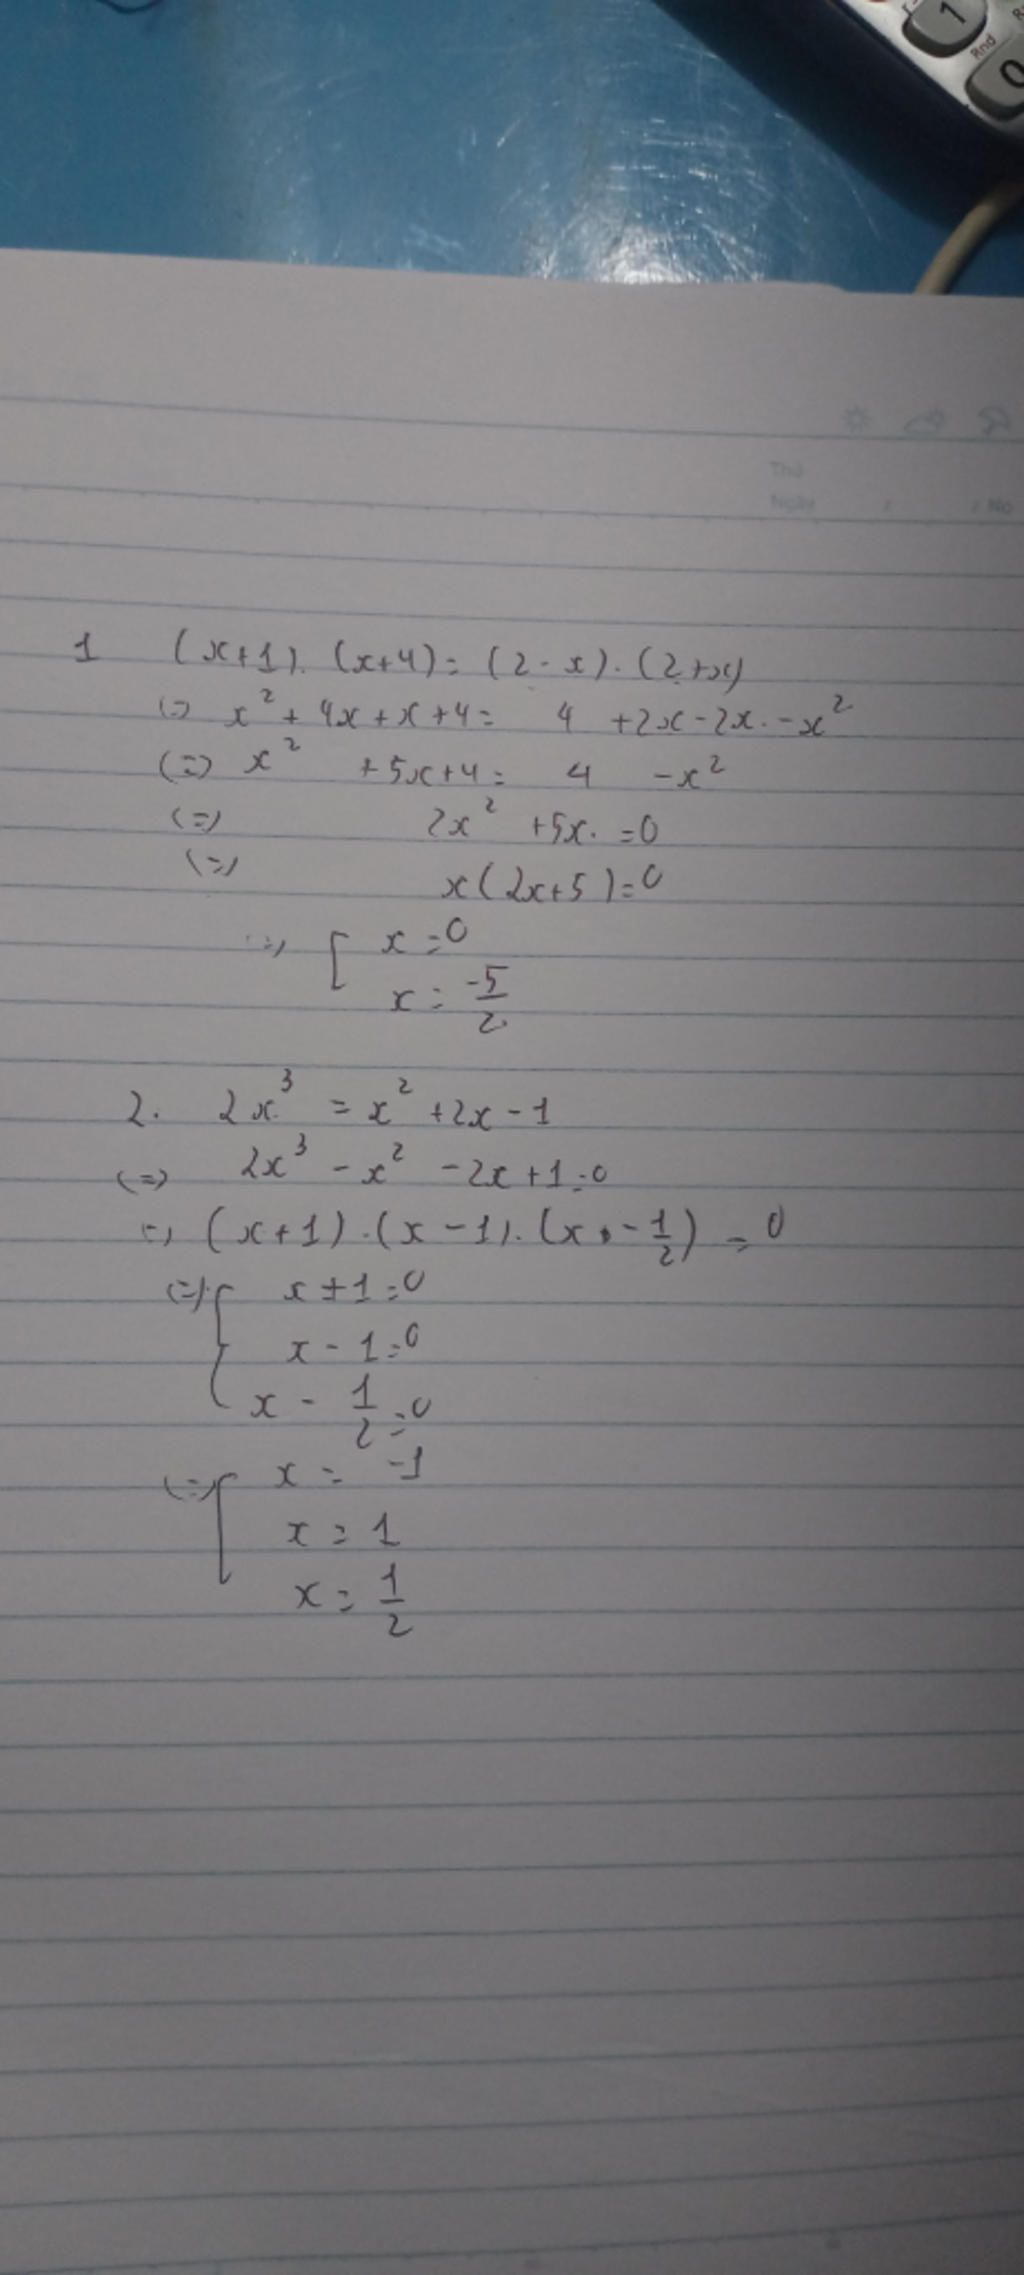 1
Rnd
0
Thứ
Ngày / / No
1 (x+1). (x+4) = (2 - x) . (2+x)
(=) x² + 4x + x + 4 = 4 + 2x - 2x. - x²
(=) x² + 5x + 4 = 4 - x²
(=) 2x² + 5x. = 0
(=) x(2x+5) = 0
=) [ x = 0
x = -5/2
2. 2x³ = x² + 2x - 1
(=) 2x³ - x² - 2x + 1 = 0
=) (x+1) . (x - 1). (x . - 1/2) = 0
(=) { x + 1 = 0
x - 1 = 0
x - 1/2 = 0
(=) [ x = -1
x = 1
x = 1/2